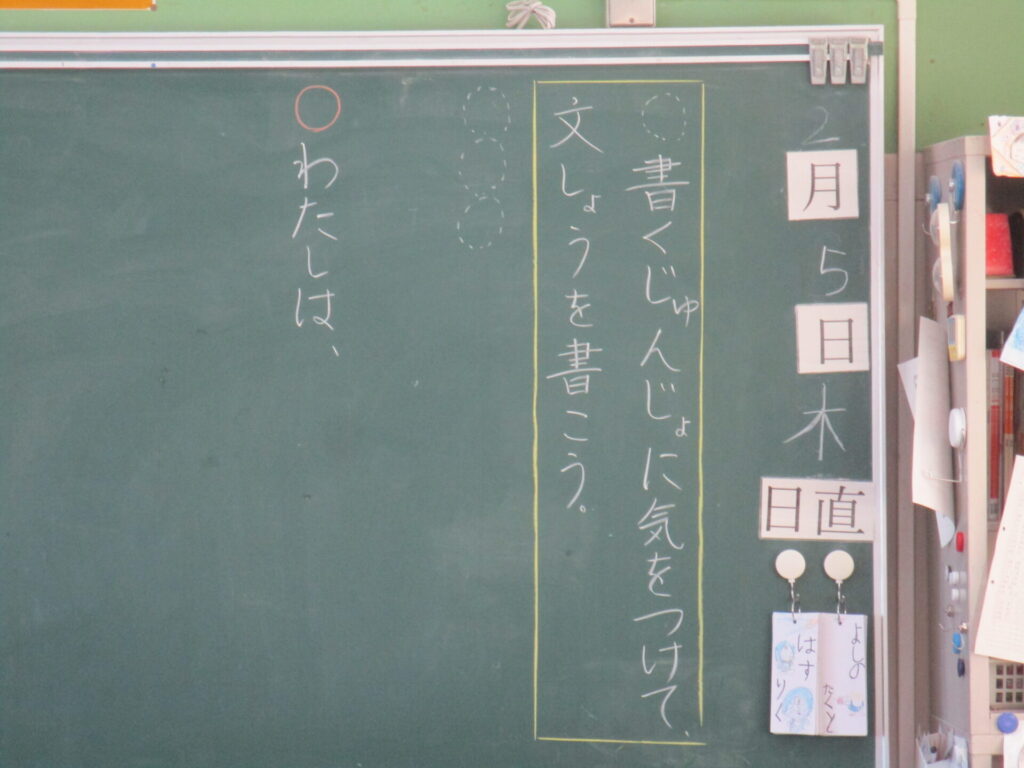 2月5日木
日直
よしの たくと
はす りく
書くじゅんじょに気をつけて、
文しょうを書こう。
わたしは、